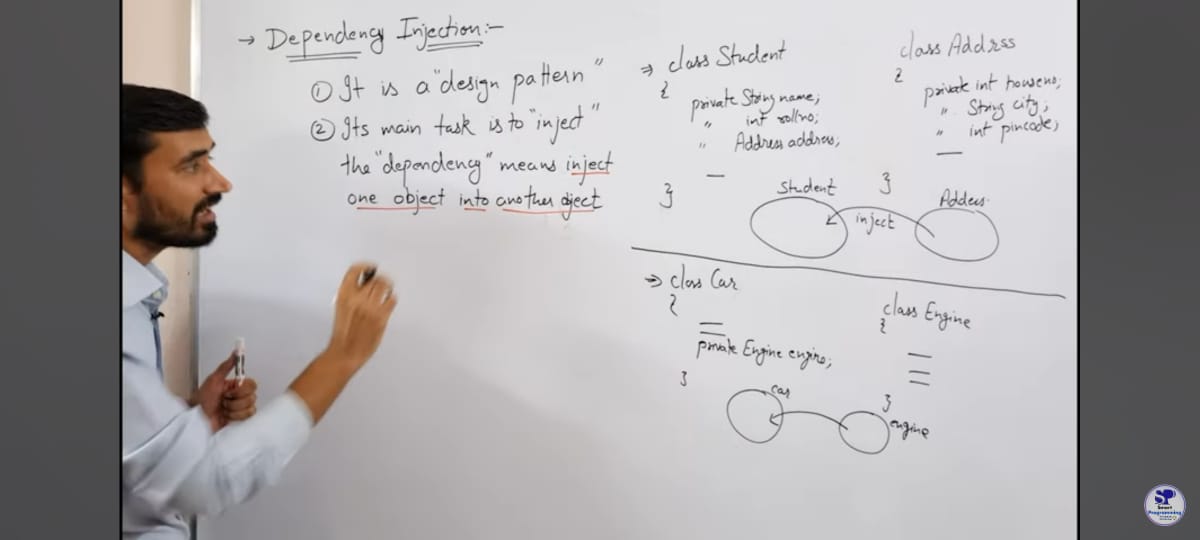 → Dependency Injection:-
① It is a "design pattern"
② Its main task is to "inject"
the "dependency" means inject
one object into another oject
⇒ class Student
{
private String name;
" int rollno;
" Address address;
—
}
class Address
{
private int houseno;
" String city;
" int pincode;
—
}
Student
inject
Addres
⇒ class Car
{
private Engine engine;
}
class Engine
{
}
car
engine
SP
Smart
Programming